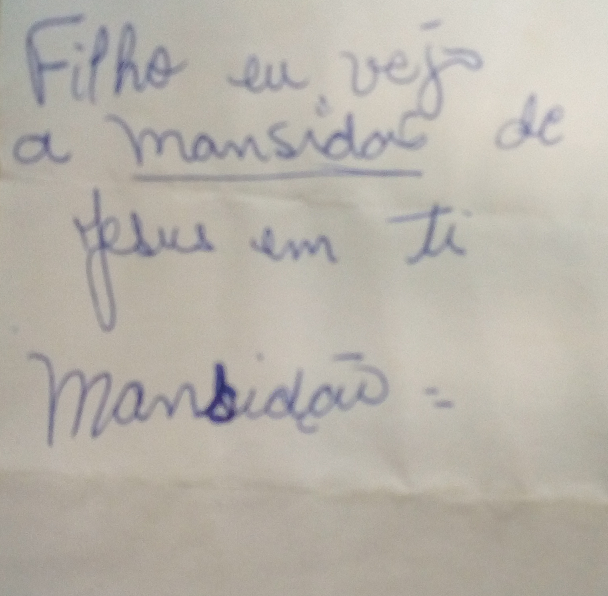 Filho eu vejo
a mansidão de
Jesus em ti
Mansidão =